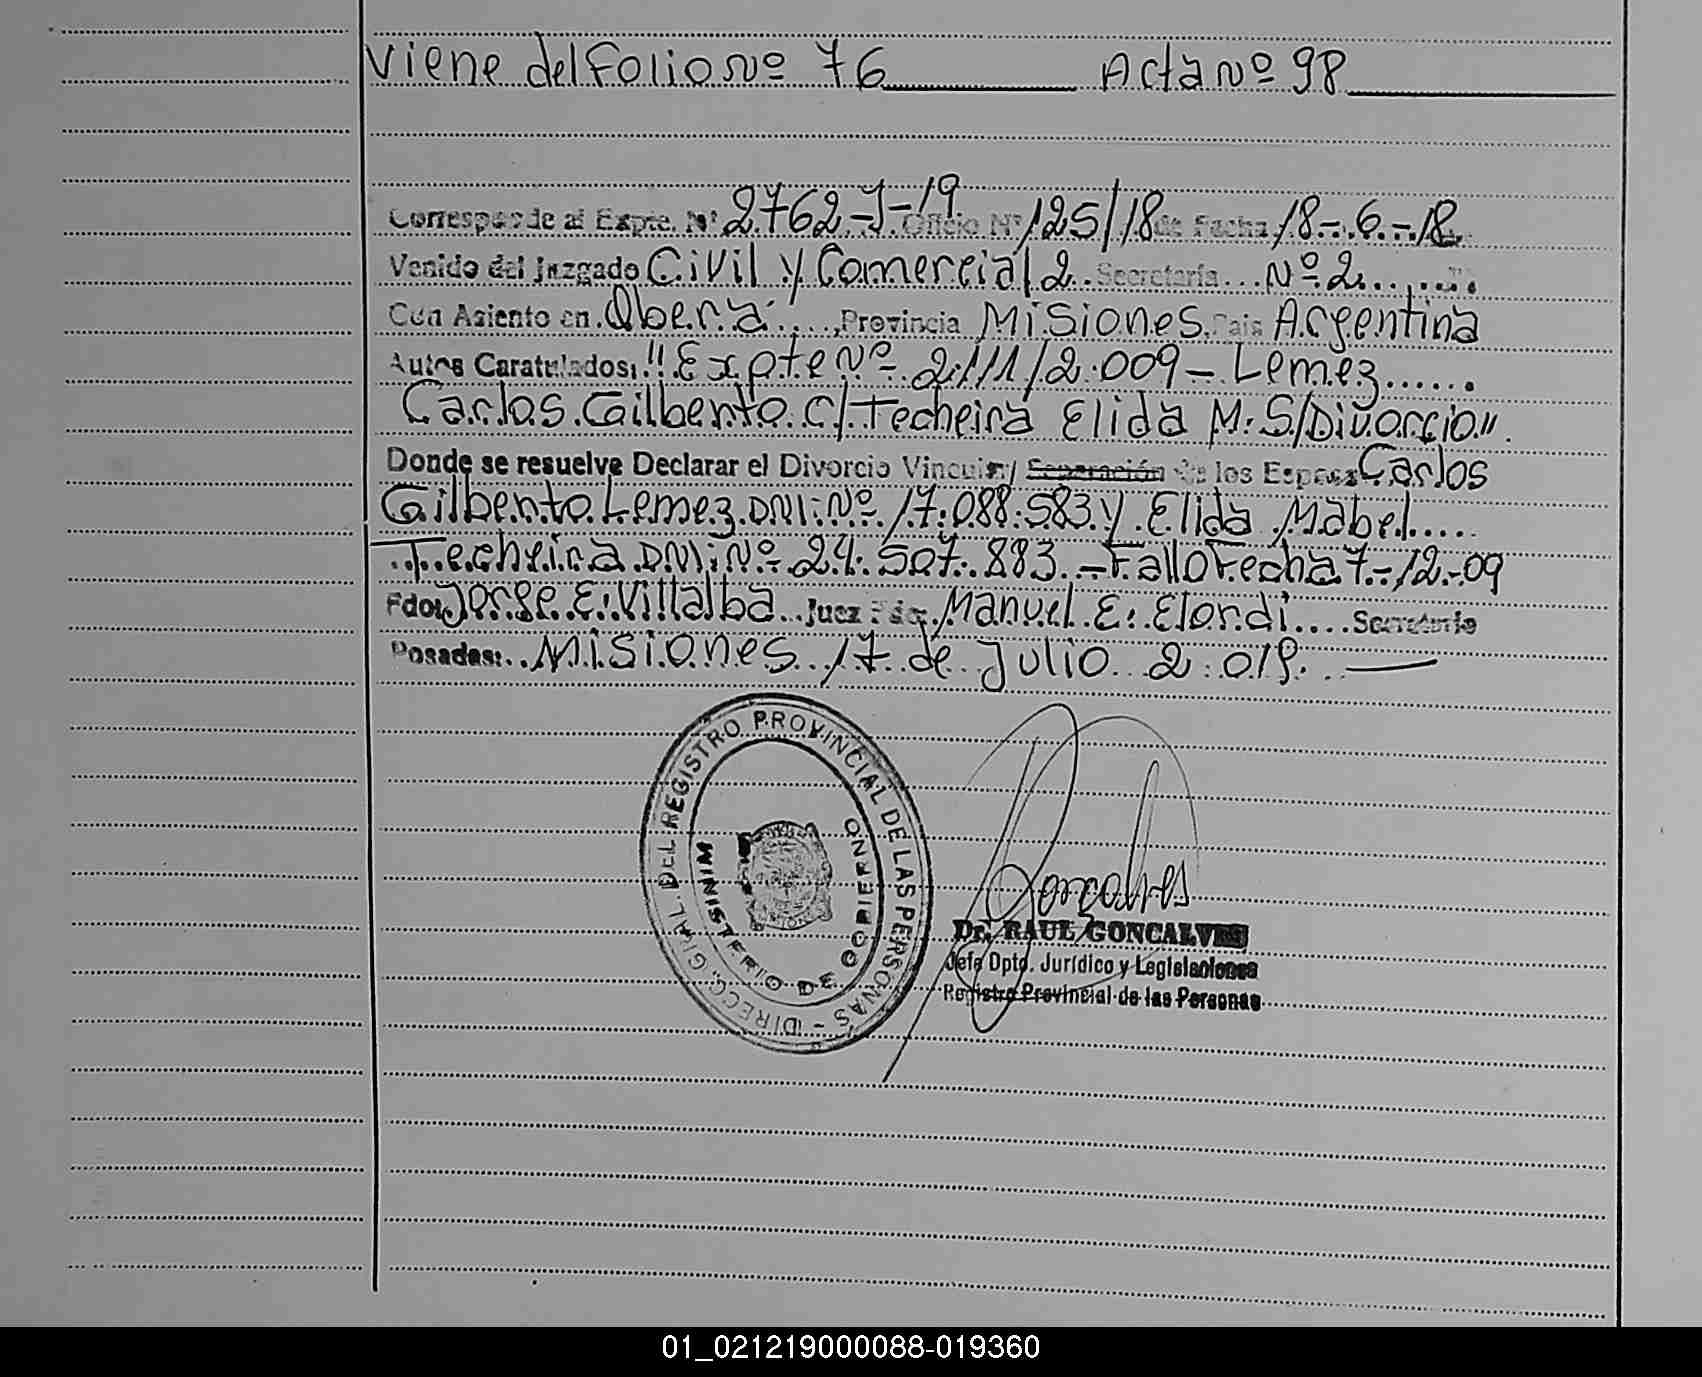 Viene del Folio Nº 76 Acta Nº 98
Corresponde al Expte. Nº 2762-J-19 Oficio Nº 125/18 de Fecha 18-6-18
Venido del Juzgado Civil y Comercial 2 Secretaría Nº 2
Con Asiento en Oberá Provincia Misiones País Argentina
Autos Caratulados: "Expte Nº 2111/2.009 - Lemez
Carlos Gilberto C/ Techeira Elida M. S/Divorcio"
Donde se resuelve Declarar el Divorcio Vincular / Separación de los Esposos Carlos
Gilberto Lemez DNI: Nº 17.088.583 y Elida Mabel
Techeira DNI Nº 24.507.883 - Fallo Fecha 7-12-09
Fdo: Jorge E. Villalba Juez Fdo: Manuel E. Elordi Secretario
Posadas: Misiones 17 de Julio 2.019.
DIRECC. GRAL. DEL REGISTRO PROVINCIAL DE LAS PERSONAS -
MINISTERIO DE GOBIERNO
Goncalves
Dr. RAUL GONCALVES
Jefe Dpto. Jurídico y Legislaciones
Registro Provincial de las Personas
01_021219000088-019360